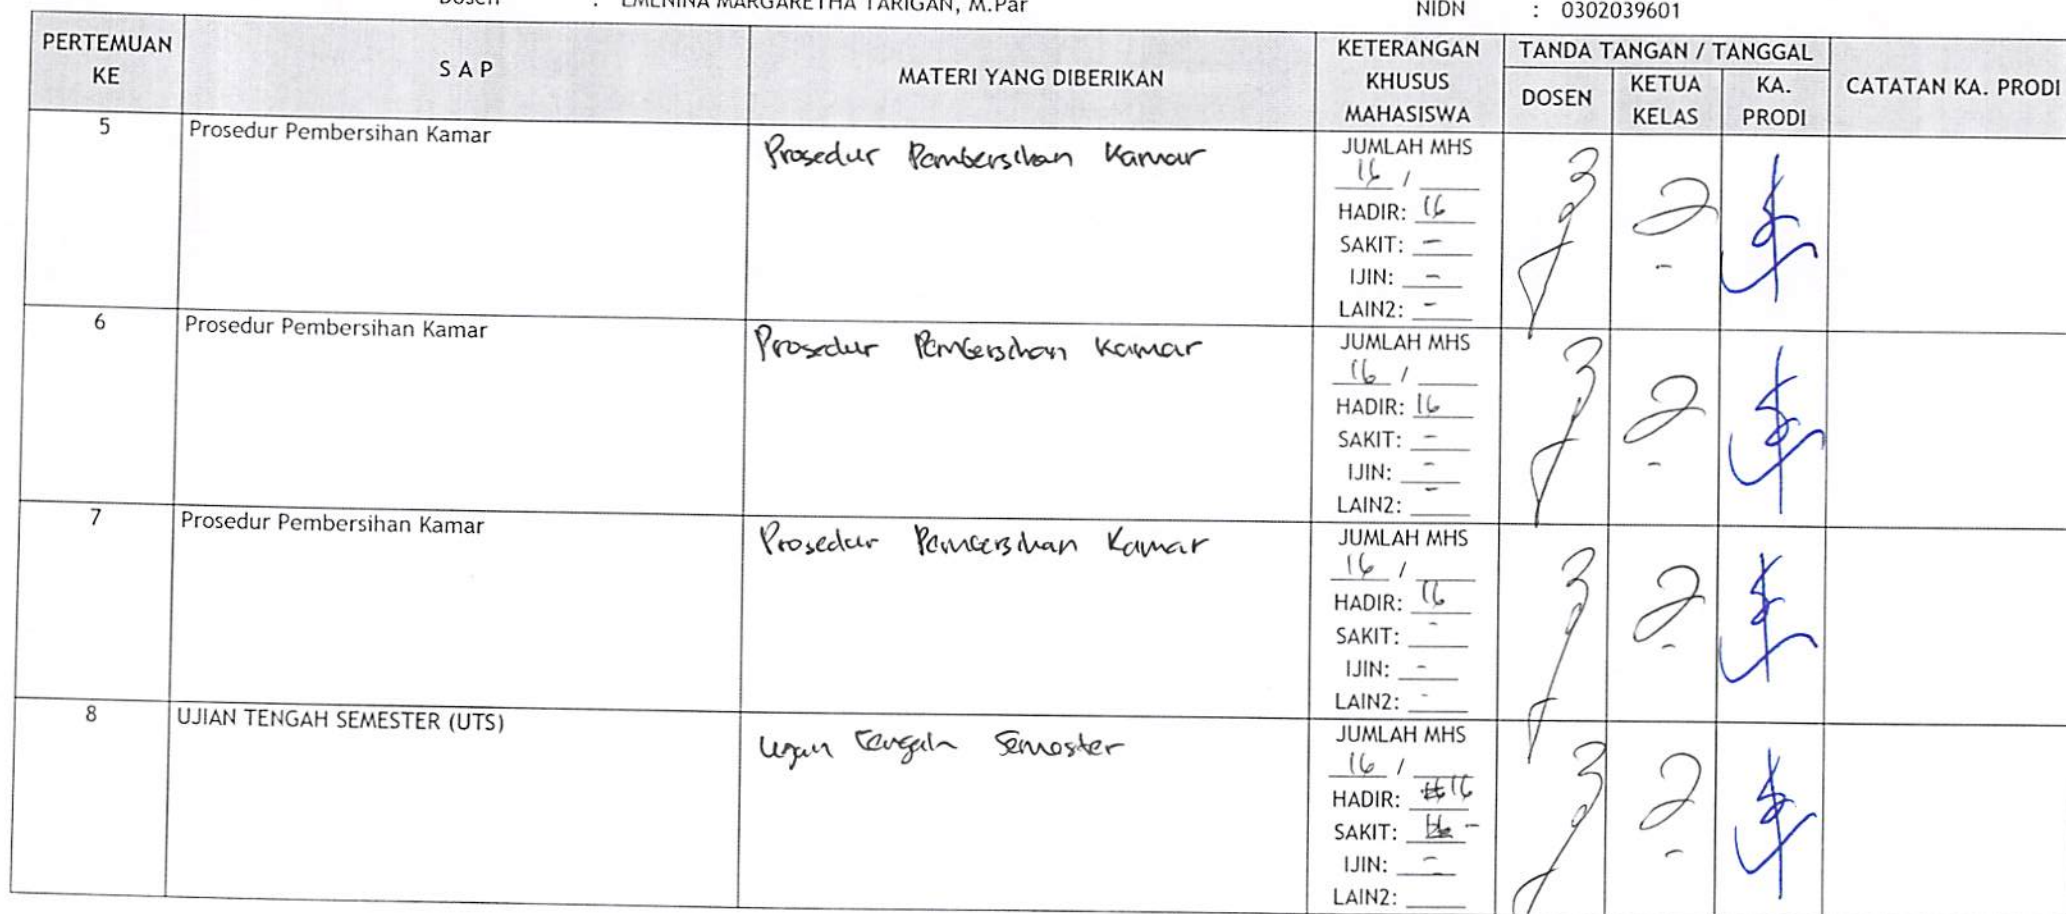 Dosen : EMENINA MARGARETHA TARIGAN, M.Par NIDN : 0302039601
PERTEMUAN KE S A P MATERI YANG DIBERIKAN KETERANGAN KHUSUS MAHASISWA TANDA TANGAN / TANGGAL CATATAN KA. PRODI
DOSEN KETUA KELAS KA. PRODI
5 Prosedur Pembersihan Kamar Prosedur Pembersihan Kamar JUMLAH MHS
16 /
HADIR: 16
SAKIT: -
IJIN: -
LAIN2: -
6 Prosedur Pembersihan Kamar Prosedur Pembersihan Kamar JUMLAH MHS
16 /
HADIR: 16
SAKIT: -
IJIN: -
LAIN2: -
7 Prosedur Pembersihan Kamar Prosedur Pembersihan Kamar JUMLAH MHS
16 /
HADIR: 16
SAKIT: -
IJIN: -
LAIN2: -
8 UJIAN TENGAH SEMESTER (UTS) Ujian Tengah Semester JUMLAH MHS
16 /
HADIR: 16
SAKIT: -
IJIN: -
LAIN2: